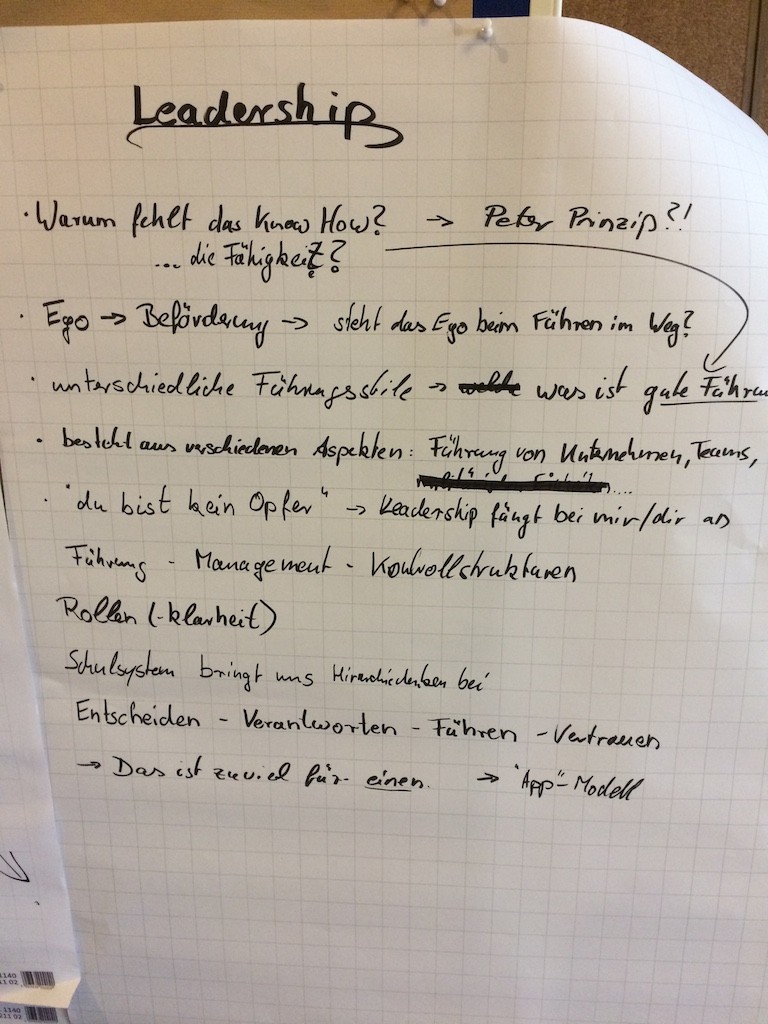 Leadership
· Warum fehlt das Know How? → Peter Prinzip?!
... die Fähigkeit?
· Ego → Beförderung → steht das Ego beim Führen im Weg?
· unterschiedliche Führungsstile → welche was ist gute Führun
· besteht aus verschiedenen Aspekten: Führung von Unternehmen, Teams,
....
· "du bist kein Opfer" → Leadership fängt bei mir/dir an
Führung - Management - Kontrollstrukturen
Rollen (-klarheit)
Schulsystem bringt uns Hirarchiedenken bei
Entscheiden - Verantworten - Führen - Vertrauen
→ Das ist zuviel für einen. → "App"-Modell
1140
11 02
1140
211 03